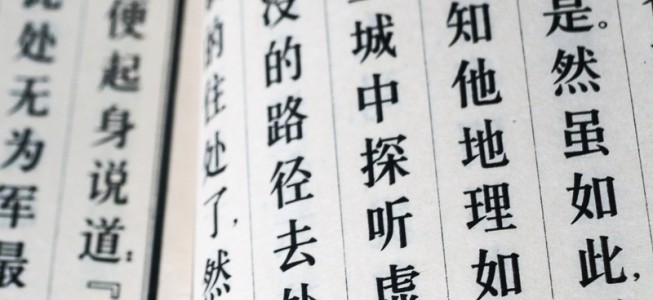 是。然虽如此,
知他地理如
城中探听虚
没的路径去
的住处了,然
便起身说道:『
此处无为军最